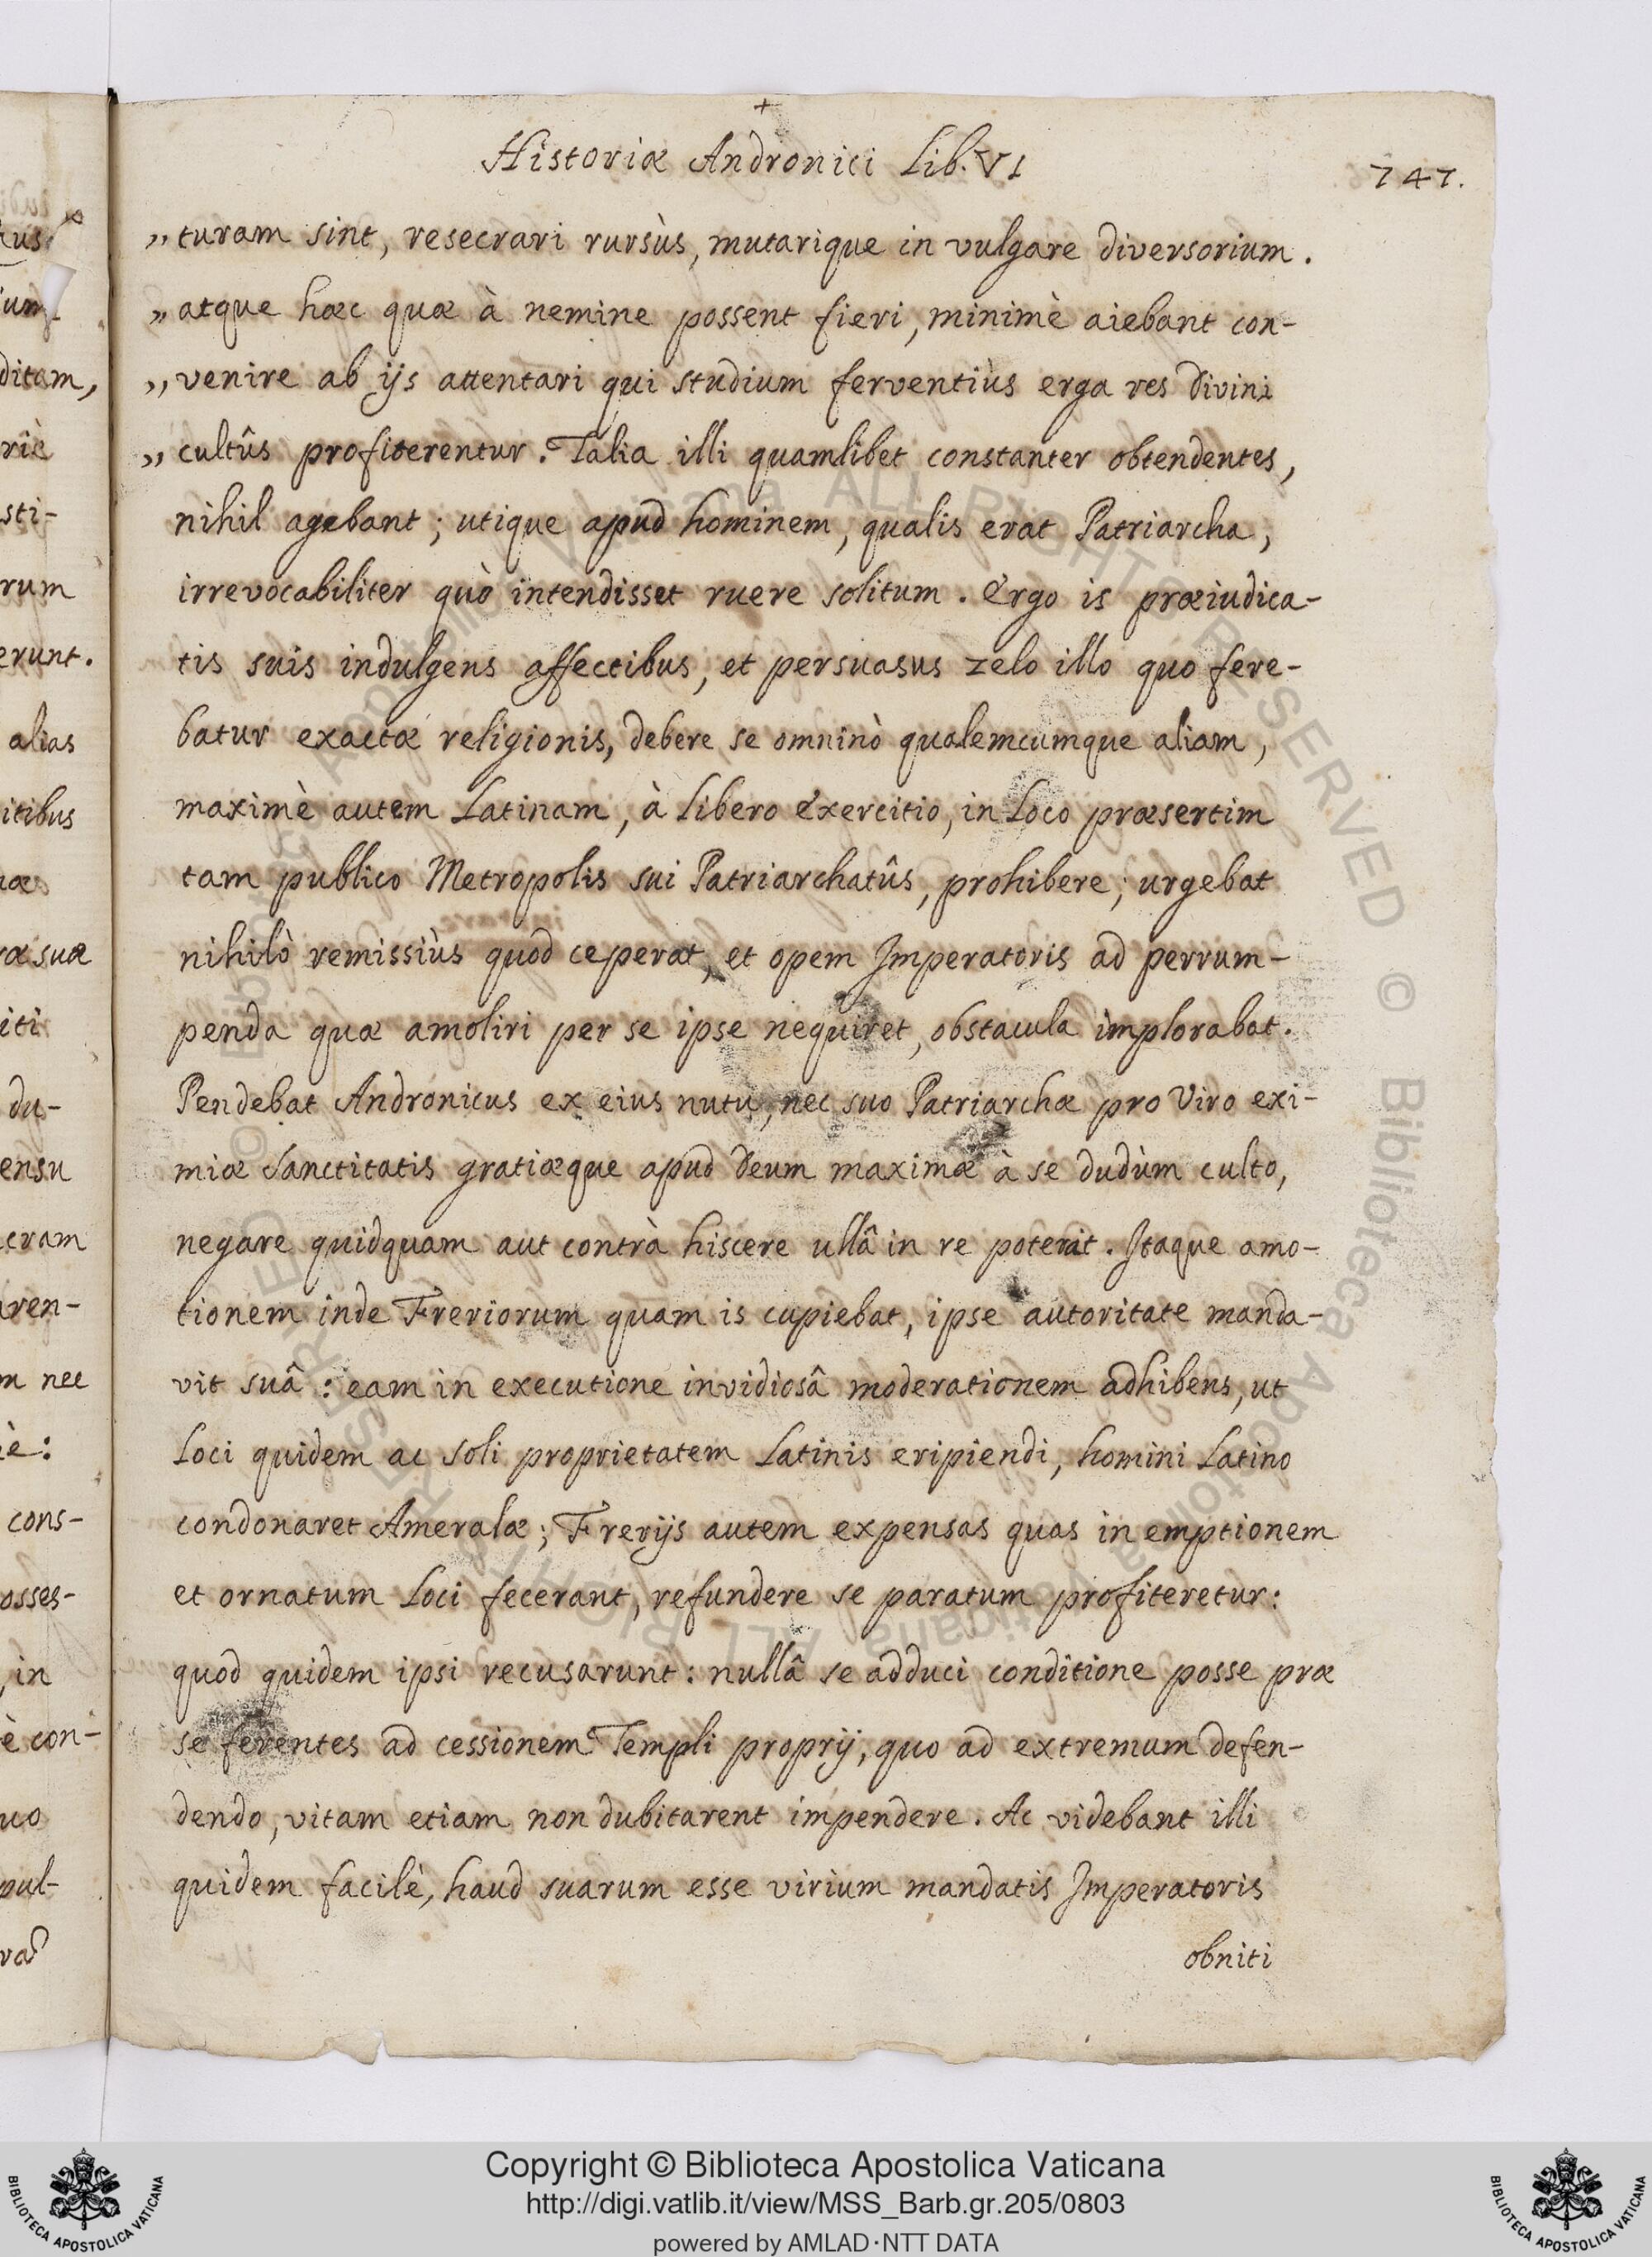 +
Historiæ Andronici Lib. VI
747.
„ turam sint, resecrari rursùs, mutarique in vulgare diversorium.
„ atque hæc quæ à nemine possent fieri, minimè aiebant con-
„ venire ab ijs attentari qui studium ferventiùs erga res divini
„ cultûs profiterentur. Talia illi quamlibet constanter obtendentes,
nihil agebant; utique apud hominem, qualis erat Patriarcha,
irrevocabiliter quò intendisset ruere solitum. Ergo is præiudica-
tis suis indulgens affectibus, et persuasus zelo illo quo fere-
batur exactæ religionis, debere se omninò qualemcumque aliam,
maximè autem Latinam, à libero exercitio, in Loco præsertim
tam publico Metropolis sui Patriarchatûs, prohibere; urgebat
nihilò remissiùs quod ceperat, et opem Imperatoris ad perrum-
penda quæ amoliri per se ipse nequiret, obstacula implorabat.
Pendebat Andronicus ex eius nutu, nec suo Patriarchæ pro Viro exi-
miæ Sanctitatis gratiæque apud Deum maximæ à se dudùm culto,
negare quidquam aut contrà hiscere ullâ in re poterat. Itaque amo-
tionem inde Freriorum quam is cupiebat, ipse autoritate manda-
vit suâ: eam in executione invidiosâ moderationem adhibens, ut
Loci quidem ac soli proprietatem Latinis eripiendi, homini Latino
condonaret Ameralæ; Frerijs autem expensas quas in emptionem
et ornatum Loci fecerant, refundere se paratum profiteretur:
quod quidem ipsi recusarunt: nullâ se adduci conditione posse præ
se ferentes ad cessionem Templi proprij, quo ad extremum defen-
dendo, vitam etiam non dubitarent impendere. Ac videbant illi
quidem facilè, haud suarum esse virium mandatis Imperatoris
obniti
ditam,
riè
sti-
rum
erunt.
alias
itibus
æ suæ
iti
du-
ensu
eram
aren-
m nec
iè:
cons-
osses-
, in
è con-
uo
pul-
Copyright © Biblioteca Apostolica Vaticana
http://digi.vatlib.it/view/MSS_Barb.gr.205/0803
powered by AMLAD·NTT DATA
BIBLIOTECA APOSTOLICA VATICANA
BIBLIOTECA APOSTOLICA VATICANA
© Biblioteca Apostolica Vaticana ALL RIGHTS RESERVED © Biblioteca Apostolica Vaticana ALL RIGHTS RESERVED